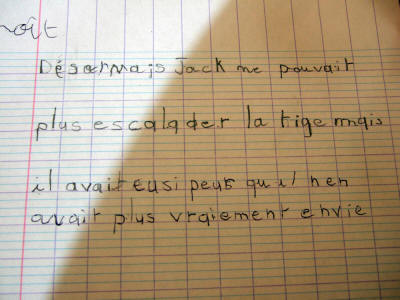 noît
Désormais Jack ne pouvait
plus escalader la tige mais
il avait eusi peur qu'il n'en
avait plus vraiement envie